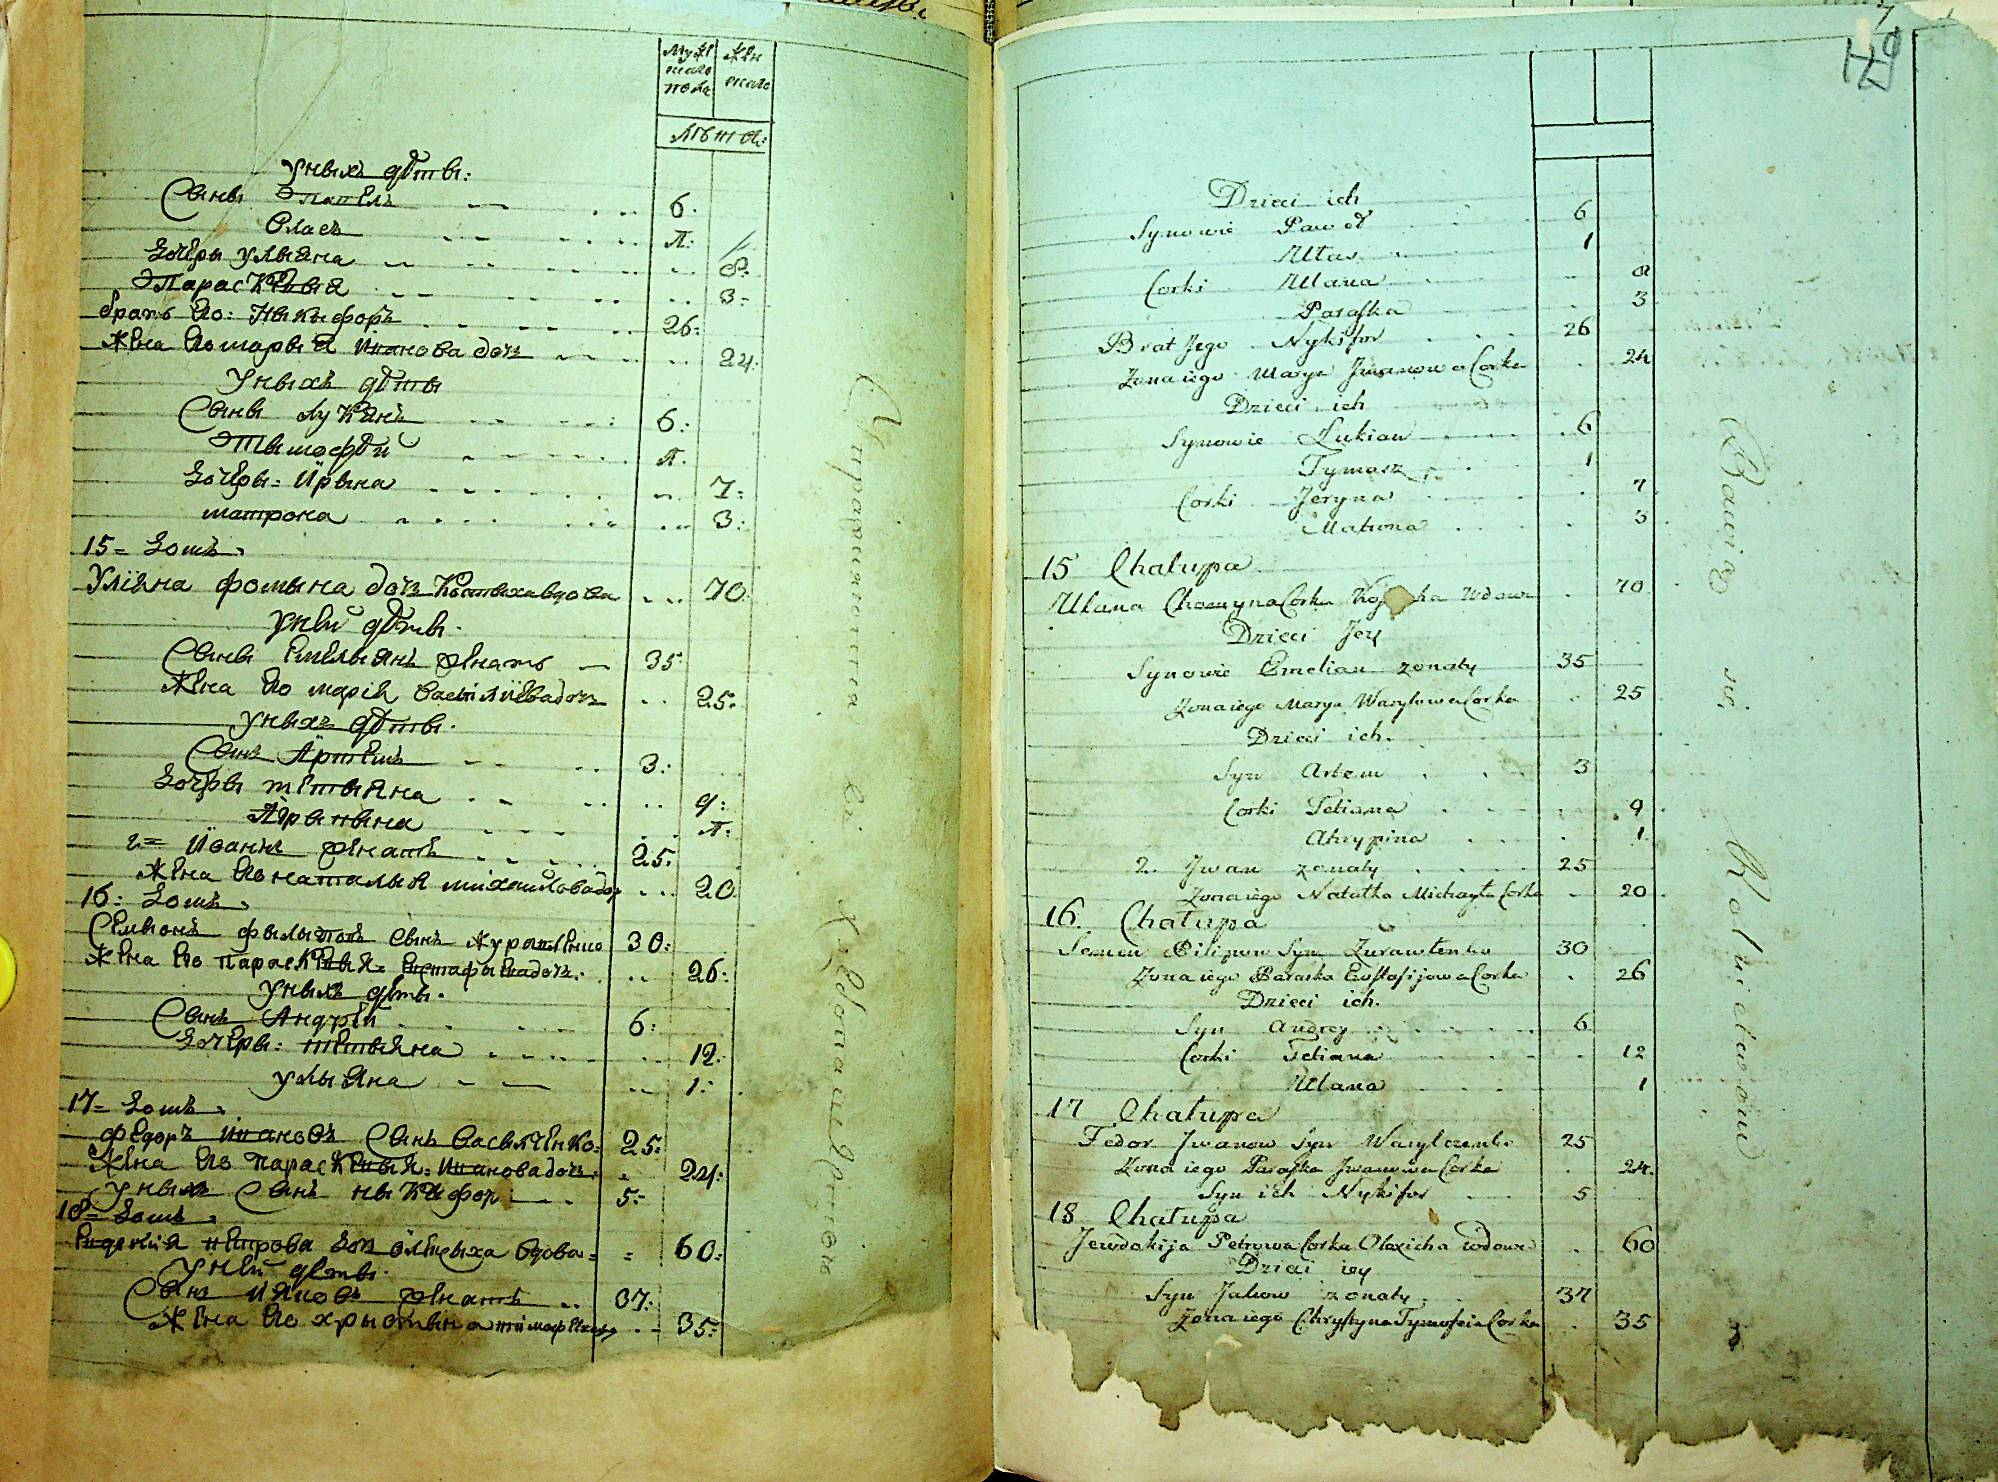 Мужескаго пола
Женскаго
Лѣта:
Уныхъ дѣти:
Сынъ Павелъ 6.
Власъ 1:
Дочеры Улыяна 8:
Парасковия 3:
братъ Его: Ныкыфоръ 26:
Жена Его марыя Иванова дочь 24:
Уныхъ дѣты
Сыны Лукянъ 6:
Тымофѣй 1.
Дочеры: Ирына 7:
матрона 3:
15= Домъ.
Улияна фомына дочь вдова 70.
Уней дѣты.
Сыны Емельянъ женатъ 35:
Жена Его марія василіева дочь 25:
Уныхъ дѣты.
Сынъ Артемъ 3:
Дочеры тетыяна 9:
Агрыпына 1:
2= Иванъ женатъ 25:
Жена Его наталыя михайлова дочь 20.
16: Домъ.
Семионъ фылыповъ сынъ журавленко 30:
Жена Его парасковия Евстафыева дочь. 26:
Уныхъ дѣты.
Сынъ Андрей 6:
Дочеры: тетыяна 12:
улыяна 1:
17= Домъ.
Федоръ Ивановъ Сынъ Василченко: 25:
Жена Его Парасковия: Иванова дочь: 24:
Уныхъ Сынъ ныкыфор 5:
18= Домъ.
Евдокия петрова дочь вдова= 60:
Уней дѣты.
Сынъ Ияковъ женатъ 37:
Жена Его хрыстына тимофеева 35:
7
Dzieci ich
Synowie Paweł 6
Ułas 1
Corki Ulana 8
Paraska 3
Brat Jego Nykifor 26
Zona iego Marya Jwanowa Corka 24
Dzieci ich
Synowie Łukian 6
Tymosz 1
Corki Jeryna 7
Matrona 3
15 Chałupa
Ulana Chomyna Corka Wdowa 70
Dzieci Jey
Synowie Emelian zonaty 35
Zona iego Marya Wasylowa Corka 25
Dzieci ich.
Syn Artem 3
Corki Tetiana 9
Ahrypina 1
2. Jwan zonaty 25
Zona iego Natałka Michayła Corka 20
16. Chałupa
Semen Filipow Syn Zurawlenko 30
Zona iego Paraska Eustafijowa Corka 26
Dzieci ich.
Syn Andrey 6
Corki Tetiana 12
Ulana 1
17 Chałupa
Fedor Jwanow Syn Wasylczenko 25
Zona iego Paraska Jwanowa Corka 24
Syn ich Nykifor 5
18 Chałupa
Jewdokija Petrowa Corka Olexicha wdowa 60
Dzieci iey
Syn Jakow zonaty 37
Zona iego Chrystyna Tymofeia Corka 35
Bawią się Rolnictwem